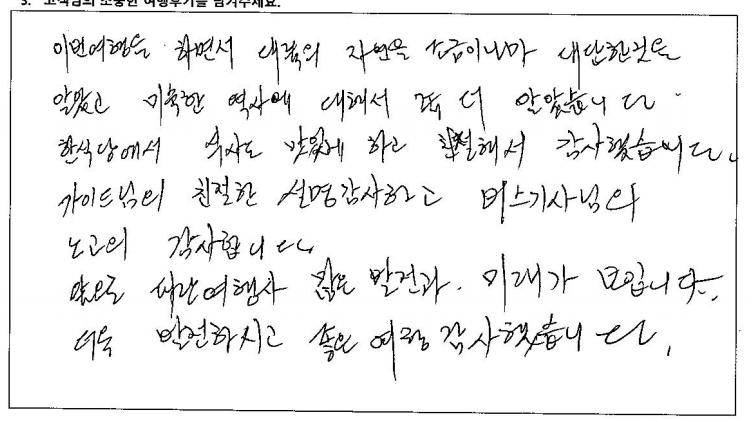 3. 고객님의 소중한 여행후기를 남겨주세요.
이번여행을 하면서 대륙의 자연을 조금이나마 대단한것을
알았고 미숙한 역사에 대해서 좀 더 알았습니다.
한식당에서 식사도 맛있게 하고 친절해서 감사했습니다.
가이드님의 친절한 설명감사하고 버스기사님의
노고의 감사합니다.
앞으로 여행사 많은 발전과. 미래가 보입니다.
더욱 발전하시고 좋은 여행 감사했습니다.